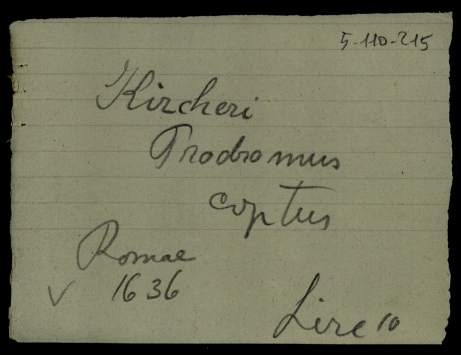 5-110-215
Kircheri
Prodromus
coptus
Romae
1636
Lire 10